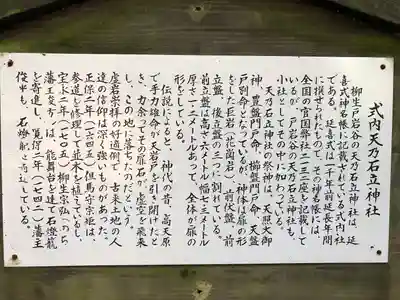 式内天乃石立神社
柳生戸岩谷の天乃石立神社は、延
喜式神名帳に記載されている式内社
である。延喜式は一千年前延長年間
に撰せられたもので、その神名帳には、
全国の官国弊社二二三二座を記載して
いるが、戸岩谷の天乃石立神社も、
小社としてその中に加っている。
天乃石立神社の祭神は、天照大御
神、豊盤門戸命、櫛盤門戸命、天盤
戸別命となっているが、神体は扉の形
をした巨岩（花崗岩）、前伏盤、前
立盤、後立盤の三つに割れている。
前立盤は高さ六メートル、幅七・三メートル
厚さ一・二メートルあって、全体が扉の
形をしている。
伝説によると、神代の昔、高天原
で手力雄命が天岩戸を引き開けたと
き、力余ってその扉石が、虚空を飛来
し、この地に落ちたのだという。
巨岩崇拝の好適例で、古来土地の人
達の信仰は深く強いものがあった。
正保二年（一六四五）但馬守宗矩は、
参道を修理して並木を植えているし、
宝永二年（一七〇五）柳生宗弘（のち
藩主俊方）は、能舞台を建て石燈籠
を寄進し、寛保二年（一七四二）藩主
俊平も、石燈